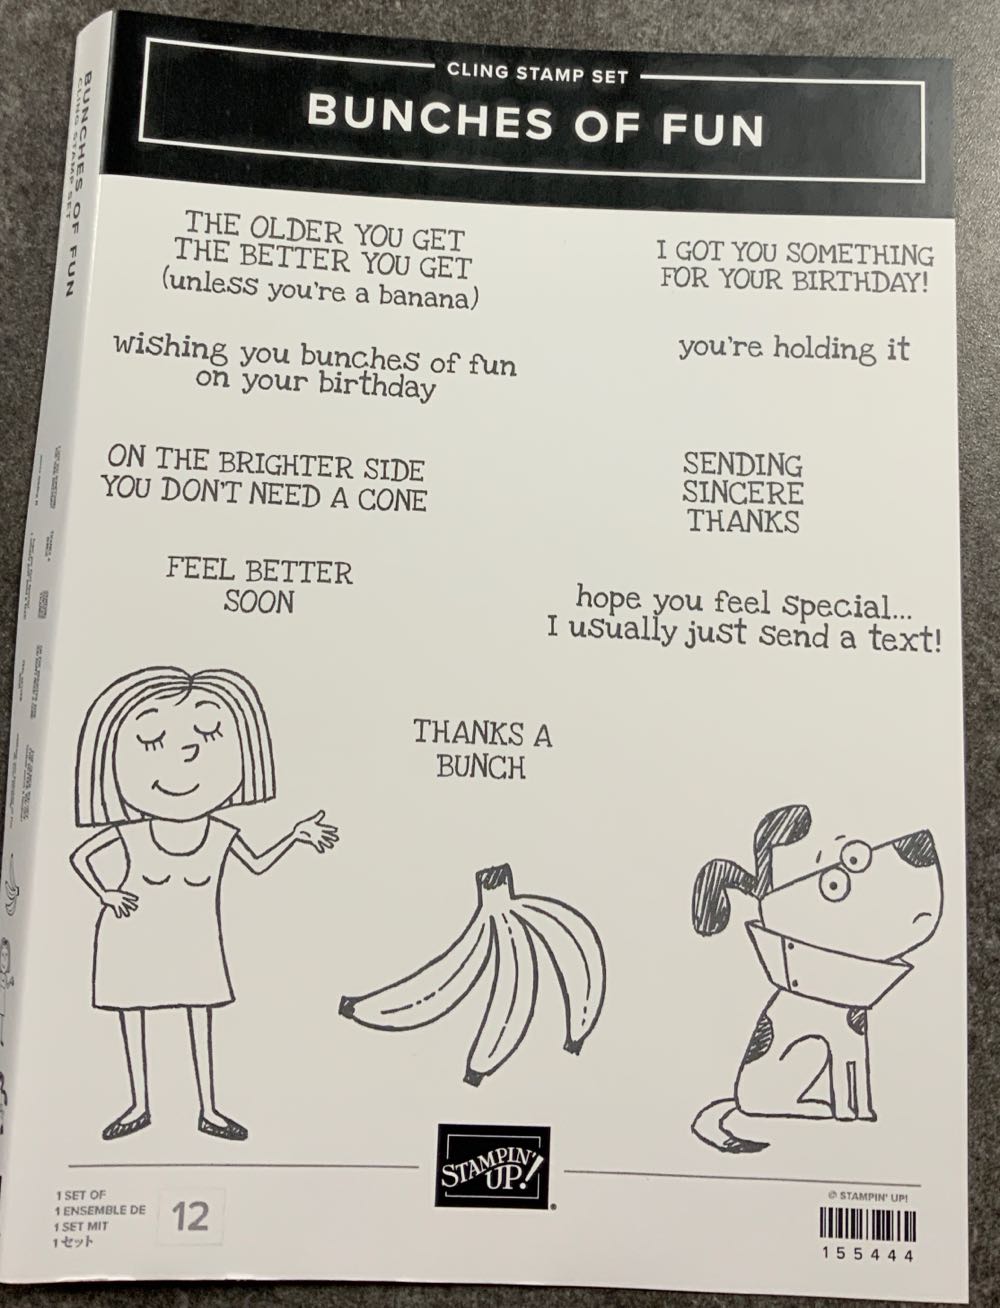 CLING STAMP SET
BUNCHES OF FUN
BUNCHES OF FUN
CLING STAMP SET
THE OLDER YOU GET
THE BETTER YOU GET
(unless you're a banana)
I GOT YOU SOMETHING
FOR YOUR BIRTHDAY!
wishing you bunches of fun
on your birthday
you're holding it
ON THE BRIGHTER SIDE
YOU DON'T NEED A CONE
SENDING
SINCERE
THANKS
FEEL BETTER
SOON
hope you feel special...
I usually just send a text!
THANKS A
BUNCH
STAMPIN'
UP!®
1 SET OF
1 ENSEMBLE DE
1 SET MIT
1セット
12
© STAMPIN' UP!
155444